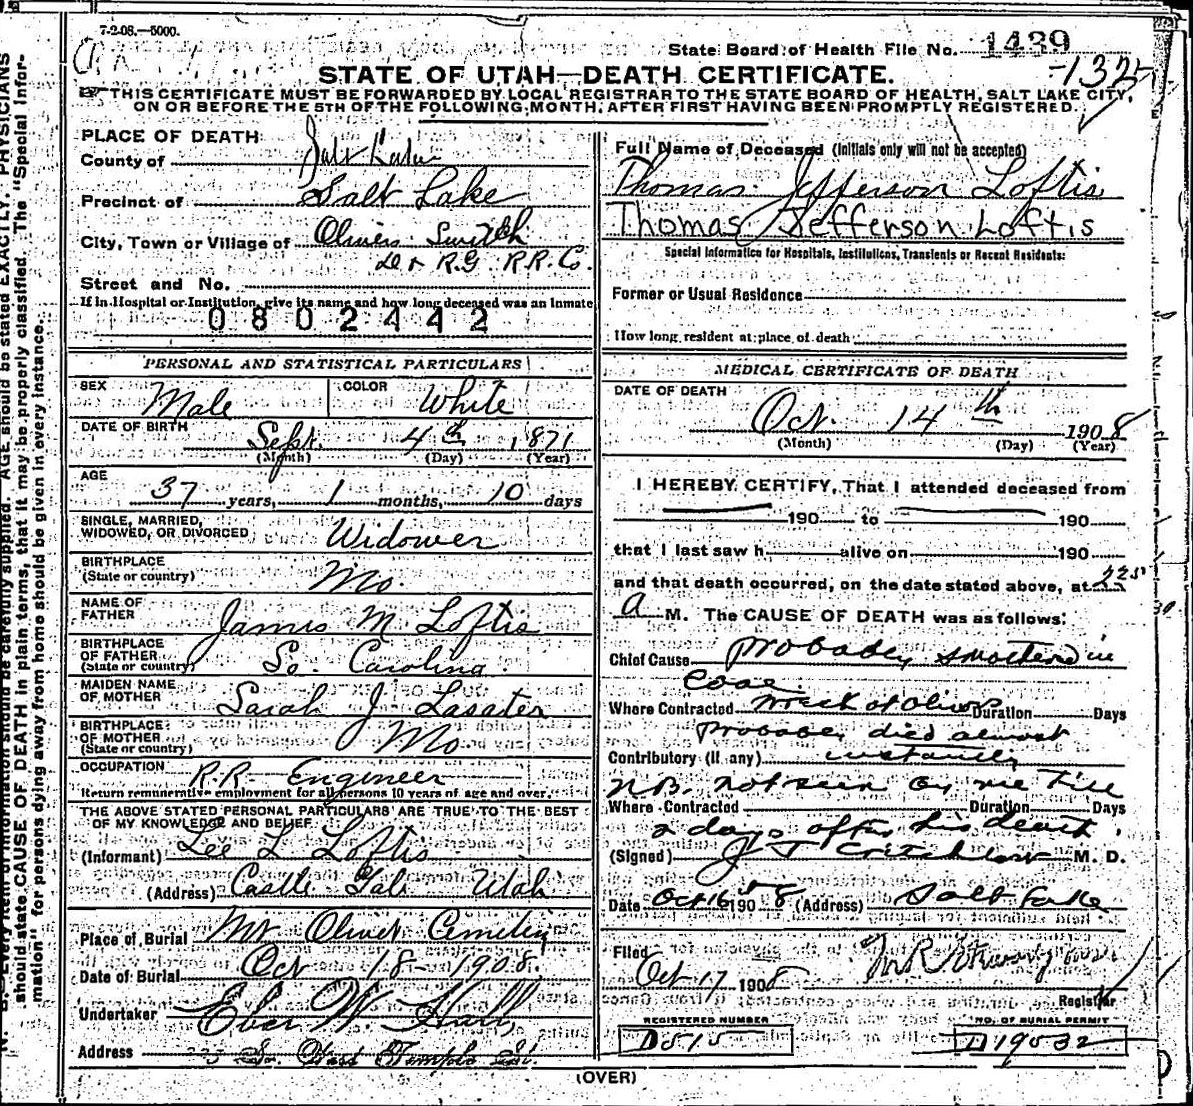 7-2-08.—5000.
State Board of Health File No. 1439
-132-
STATE OF UTAH—DEATH CERTIFICATE.
THIS CERTIFICATE MUST BE FORWARDED BY LOCAL REGISTRAR TO THE STATE BOARD OF HEALTH, SALT LAKE CITY,
ON OR BEFORE THE 5TH OF THE FOLLOWING MONTH, AFTER FIRST HAVING BEEN PROMPTLY REGISTERED.
PLACE OF DEATH
County of Salt Lake
Precinct of Salt Lake
City, Town or Village of Olivers Switch
D & R.G. R.R. Co.
Street and No.
If in Hospital or Institution, give its name and how long deceased was an inmate
0802442
PERSONAL AND STATISTICAL PARTICULARS
SEX Male COLOR White
DATE OF BIRTH Sept. 4th 1871
(Month) (Day) (Year)
AGE
37 years, 1 months, 10 days
SINGLE, MARRIED,
WIDOWED, OR DIVORCED Widower
BIRTHPLACE
(State or country) Mo.
NAME OF
FATHER James M Loftis
BIRTHPLACE
OF FATHER
(State or country) So. Carolina
MAIDEN NAME
OF MOTHER Sarah J Lasater
BIRTHPLACE
OF MOTHER
(State or country) Mo.
OCCUPATION R.R. Engineer
Return remunerative employment for all persons 10 years of age and over.
THE ABOVE STATED PERSONAL PARTICULARS ARE TRUE TO THE BEST
OF MY KNOWLEDGE AND BELIEF
(Informant) Lee L Loftis
(Address) Castle Gate Utah
Place of Burial Mt Olivet Cemetery
Date of Burial Oct 18 1908.
Undertaker Eber W. Hall
Address So. West Temple St.
Full Name of Deceased (Initials only will not be accepted)
Thomas Jefferson Loftis
Thomas Jefferson Loftis
Special Information for Hospitals, Institutions, Transients or Recent Residents:
Former or Usual Residence
How long resident at place of death
MEDICAL CERTIFICATE OF DEATH
DATE OF DEATH
Oct. 14th 1908
(Month) (Day) (Year)
I HEREBY CERTIFY, That I attended deceased from
190 to 190
that I last saw h alive on 190
and that death occurred, on the date stated above, at 2 25
a M. The CAUSE OF DEATH was as follows:
Chief Cause probably smothered in
coal.
Where Contracted wreck at Olivers Duration Days
probably died almost
Contributory (if any) instantly
N.B. not seen by me till
Where Contracted Duration Days
2 days after his death.
(Signed) J T Critchlow M. D.
Date Oct 16 1908 (Address) Salt Lake
Filed
Oct 17 1908
Registrar
REGISTERED NUMBER
D515
NO. OF BURIAL PERMIT
D19032
(OVER)
N. B.—Every item of information should be carefully supplied. AGE should be stated EXACTLY. PHYSICIANS
should state CAUSE OF DEATH in plain terms, that it may be properly classified. The "Special Infor-
mation" for persons dying away from home should be given in every instance.